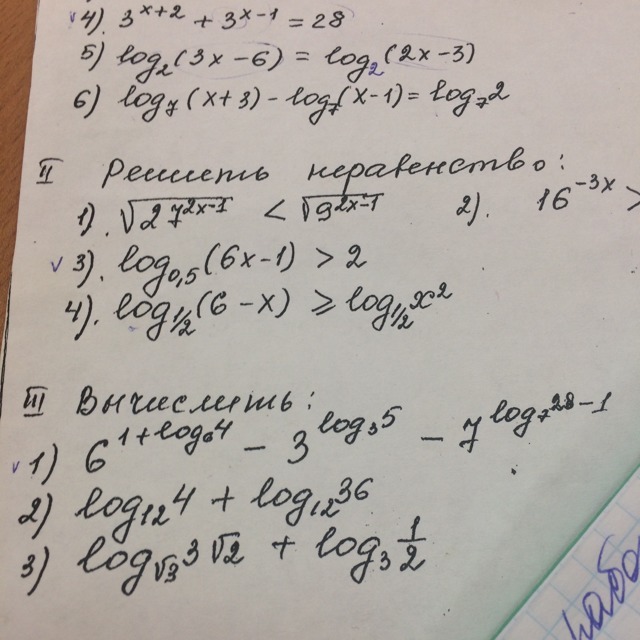 4). 3^{x+2} + 3^{x-1} = 28
5) log₂(3x – 6) = log₂(2x – 3)
6) log₇(x+3) – log₇(x-1) = log₇2
II Решить неравенство:
1). √(27^{2x-1}) < √(9^{2x-1}) 2). 16^{-3x} >
3). log_{0,5}(6x-1) > 2
4). log_{1/2}(6-x) ≥ log_{1/2}x²
III Вычислить:
1) 6^{1+log₆4} – 3^{log₃5} – 7^{log₇28-1}
2) log₁₂4 + log₁₂36
3) log_{√3}3√2 + log₃ 1/2